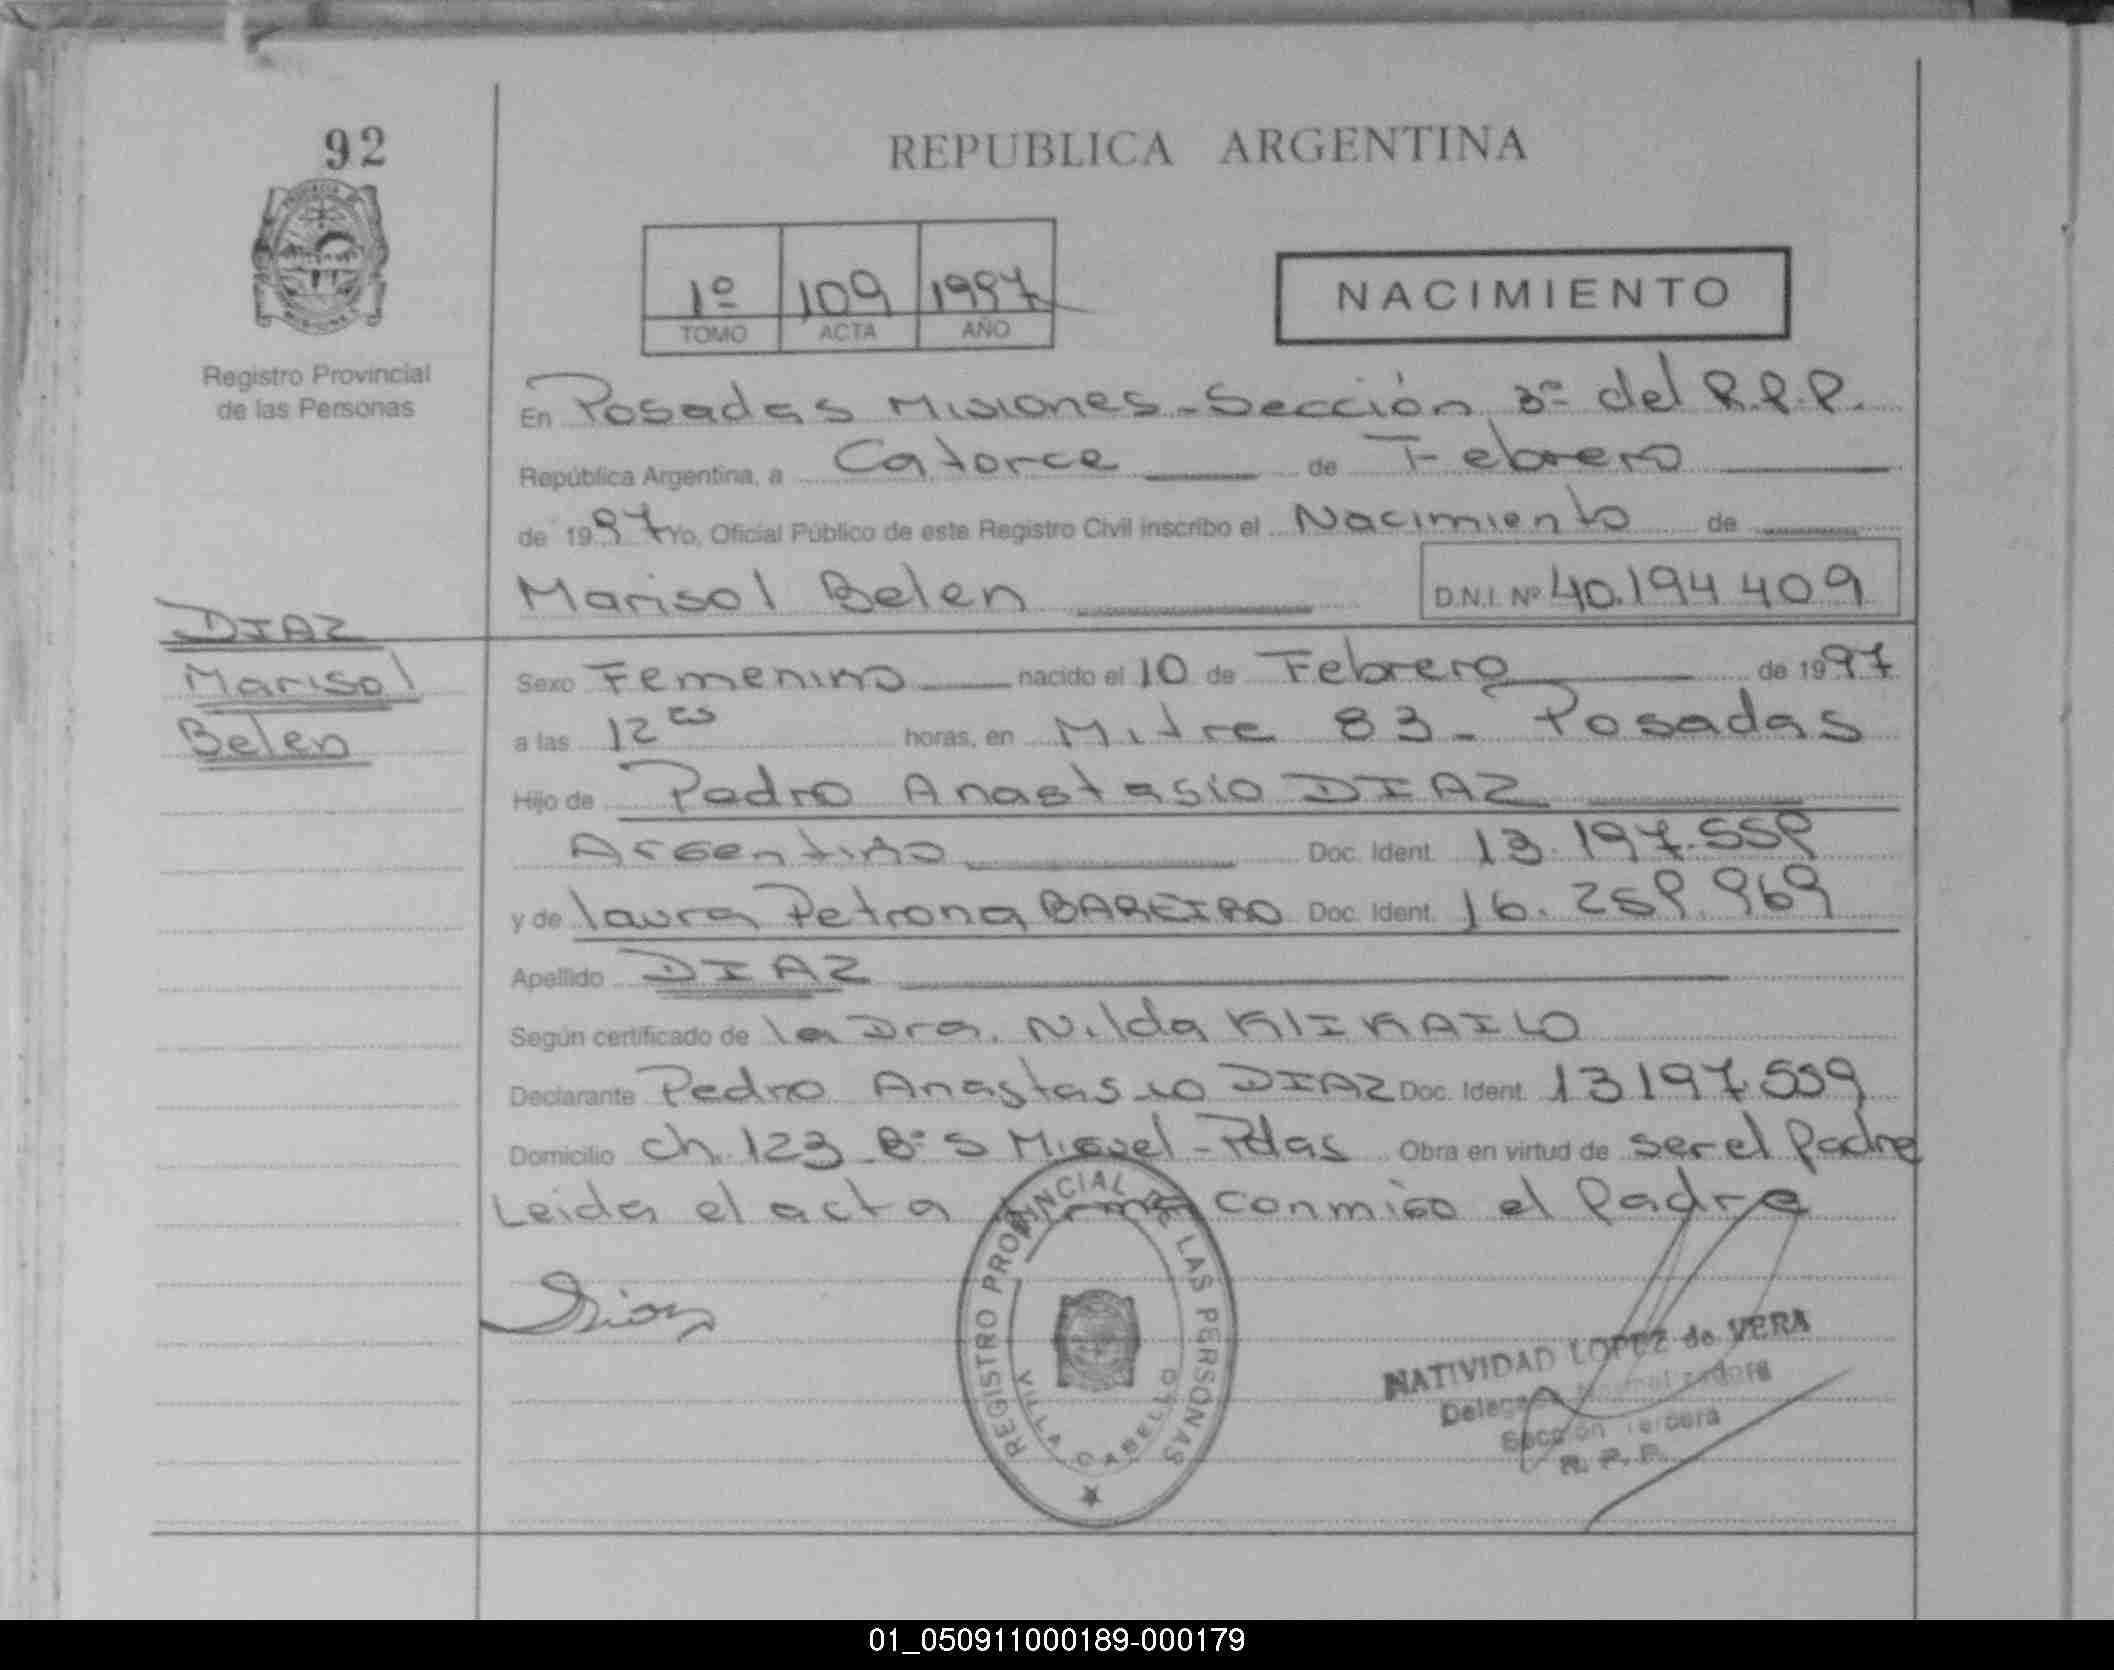 92
REPUBLICA ARGENTINA
1º 109 1997
TOMO ACTA AÑO
NACIMIENTO
Registro Provincial
de las Personas
En Posadas Misiones - Sección 3ª del R.P.P.
República Argentina, a Catorce de Febrero
de 1997 Yo, Oficial Público de este Registro Civil inscribo el Nacimiento de
Marisol Belen D.N.I. Nº 40.194 409
DIAZ
Marisol
Belen
Sexo Femenino nacido el 10 de Febrero de 1997
a las 12 horas, en Mitre 83 - Posadas
Hijo de Pedro Anastasio DIAZ
Argentino Doc. Ident. 13.197.559
y de Laura Petrona BAREIRO Doc. Ident. 16.259.969
Apellido DIAZ
Según certificado de la Dra. Nilda KLIKAILO
Declarante Pedro Anastasio DIAZ Doc. Ident. 13197.559
Domicilio ch. 123 Bº S Miguel - Pdas Obra en virtud de ser el Padre
Leida el acta firma conmigo el Padre
REGISTRO PROVINCIAL DE LAS PERSONAS
VILLA CABELLO
NATIVIDAD LOPEZ de VERA
Sección Tercera
R. P. P.
01_050911000189-000179